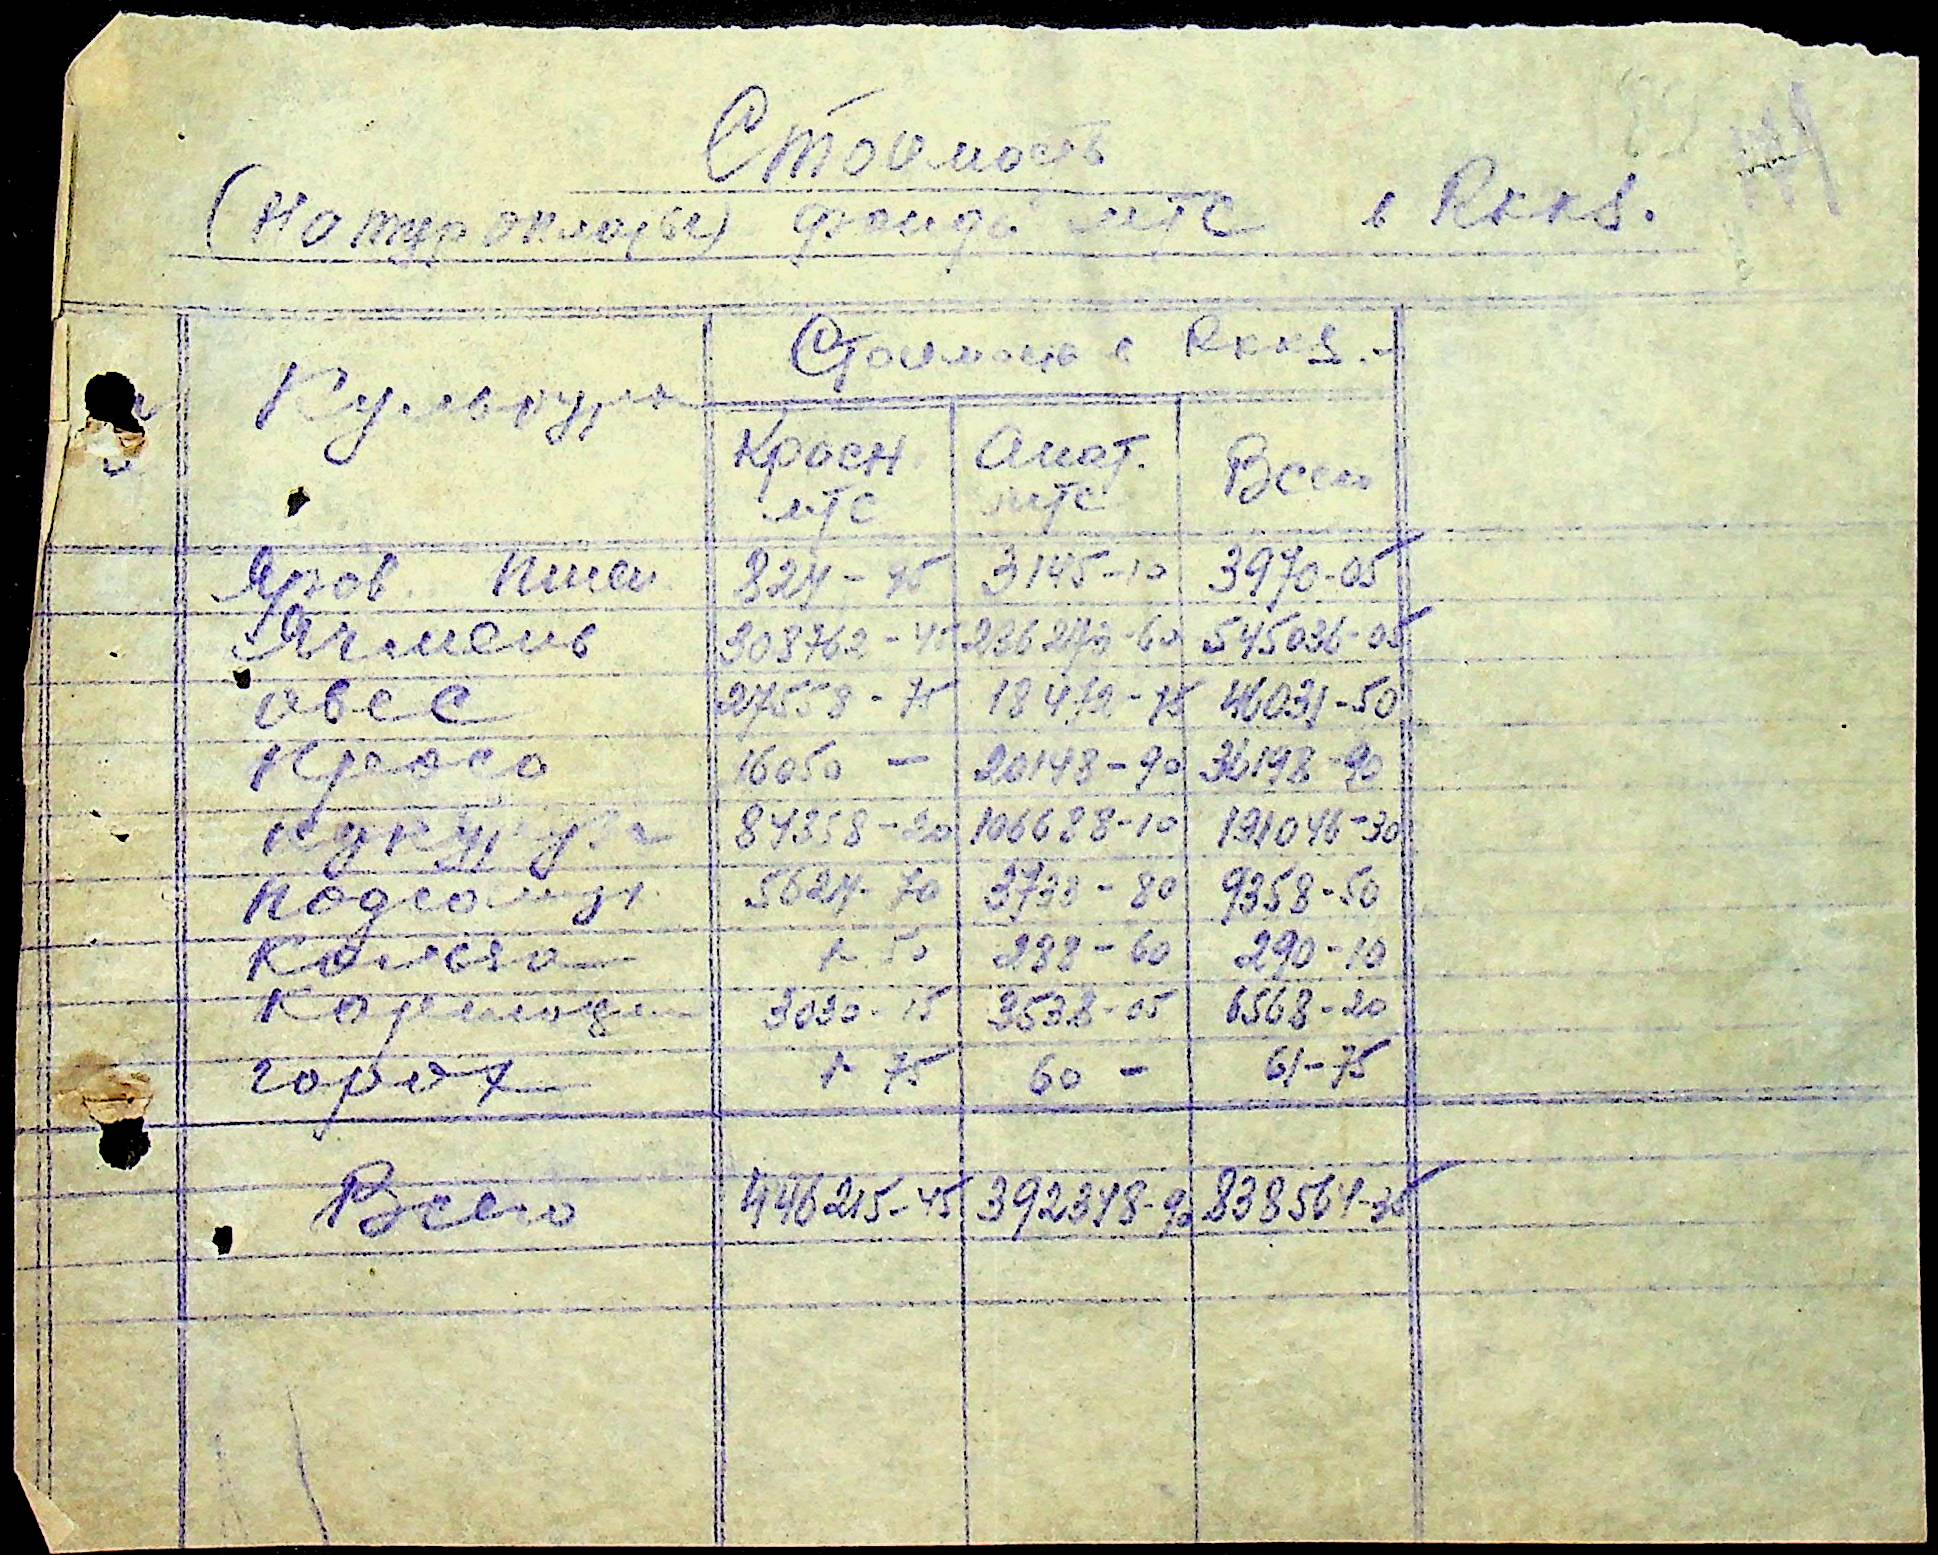 Стоимость
(Натуроплаты) фонда МТС в Rkks.
Культура
Стоимость в Rkks.
Красн. Анат. Всего
МТС МТС
Яров. Пшен. 824-95 3145-10 3970-05
Ячмень 308762-45 236273-60 545036-05
Овес 27558-75 18472-75 46031-50
Просо 16050 - 20148-90 36198-90
Кукуруза 84358-20 106688-10 191046-30
Подсолнух 5624-70 3733-80 9358-50
Кользо 1-50 288-60 290-10
Картофель 3030-15 3538-05 6568-20
горох 1-75 60 - 61-75
Всего 446215-45 392348-90 838564-35